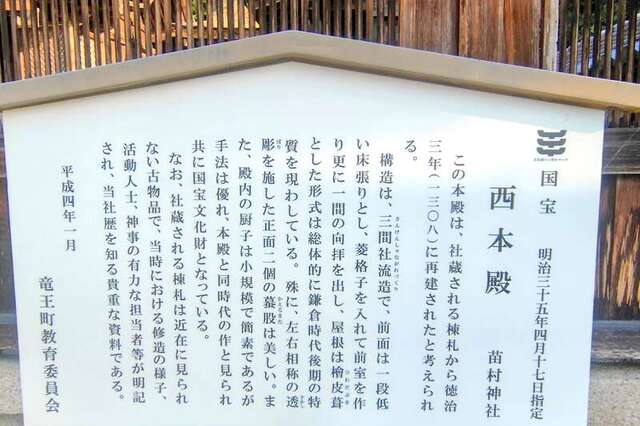 国宝　明治三十五年四月十七日指定
西本殿　苗村神社
この本殿は、社蔵される棟札から徳治
三年(一三〇八)に再建されたと考えられ
る。
構造は、三間社流造で、前面は一段低
い床張りとし、菱格子を入れて前室を作
り更に一間の向拝を出し、屋根は檜皮葺
とした形式は総体的に鎌倉時代後期の特
質を現わしている。殊に、左右相称の透
彫を施した正面二個の蟇股は美しい。ま
た、殿内の厨子は小規模で簡素であるが
手法は優れ、本殿と同時代の作と見られ
共に国宝文化財となっている。
なお、社蔵される棟札は近在に見られ
ない古物品で、当時における修造の様子、
活動人士、神事の有力な担当者等が明記
され、当社歴を知る貴重な資料である。
平成四年一月
竜王町教育委員会